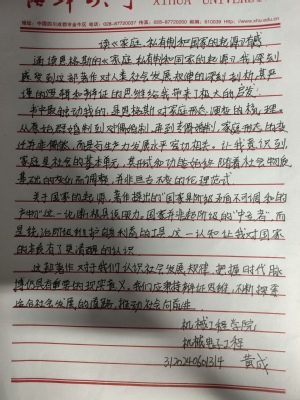 西华大学 XIHUA UNIVERSITY
地址：中国四川成都市金牛区 电话：028-87720037 传真：028-87720200 邮编：610039 Http://www.xhu.edu.cn
读《家庭、私有制和国家的起源》有感
通读恩格斯的《家庭、私有制和国家的起源》，我深刻
感受到这部著作对人类社会发展规律的深刻剖析，其严
谨的逻辑和辩证的思维给我带来极大的启发。
书中最触动我的，是恩格斯对家庭形式演变的梳理。
从群婚到对偶制，再到专偶制，家庭形态的变
迁并非偶然，而是与生产力发展水平密切相关。让我意识到，
家庭是社会的基本单元，其形式和功能始终随着社会物质
基础的变化而调整，并非亘古不变的伦理范式。
关于国家的起源，著作提出的“国家是阶级矛盾不可调和的
产物”这一论断极具说服力。国家并非超阶级的“中立者”，而
是统治阶级维护自身利益的工具，这一认知让我对国家
的本质有了更清醒的认识。
这部著作对于我们认识社会发展规律、把握时代脉
搏仍具有重要的现实意义。我们应秉持辩证思维，不断探索
适合社会发展的道路，推动社会向前进。
机械工程学院
机械电子工程
3120240601314 黄成